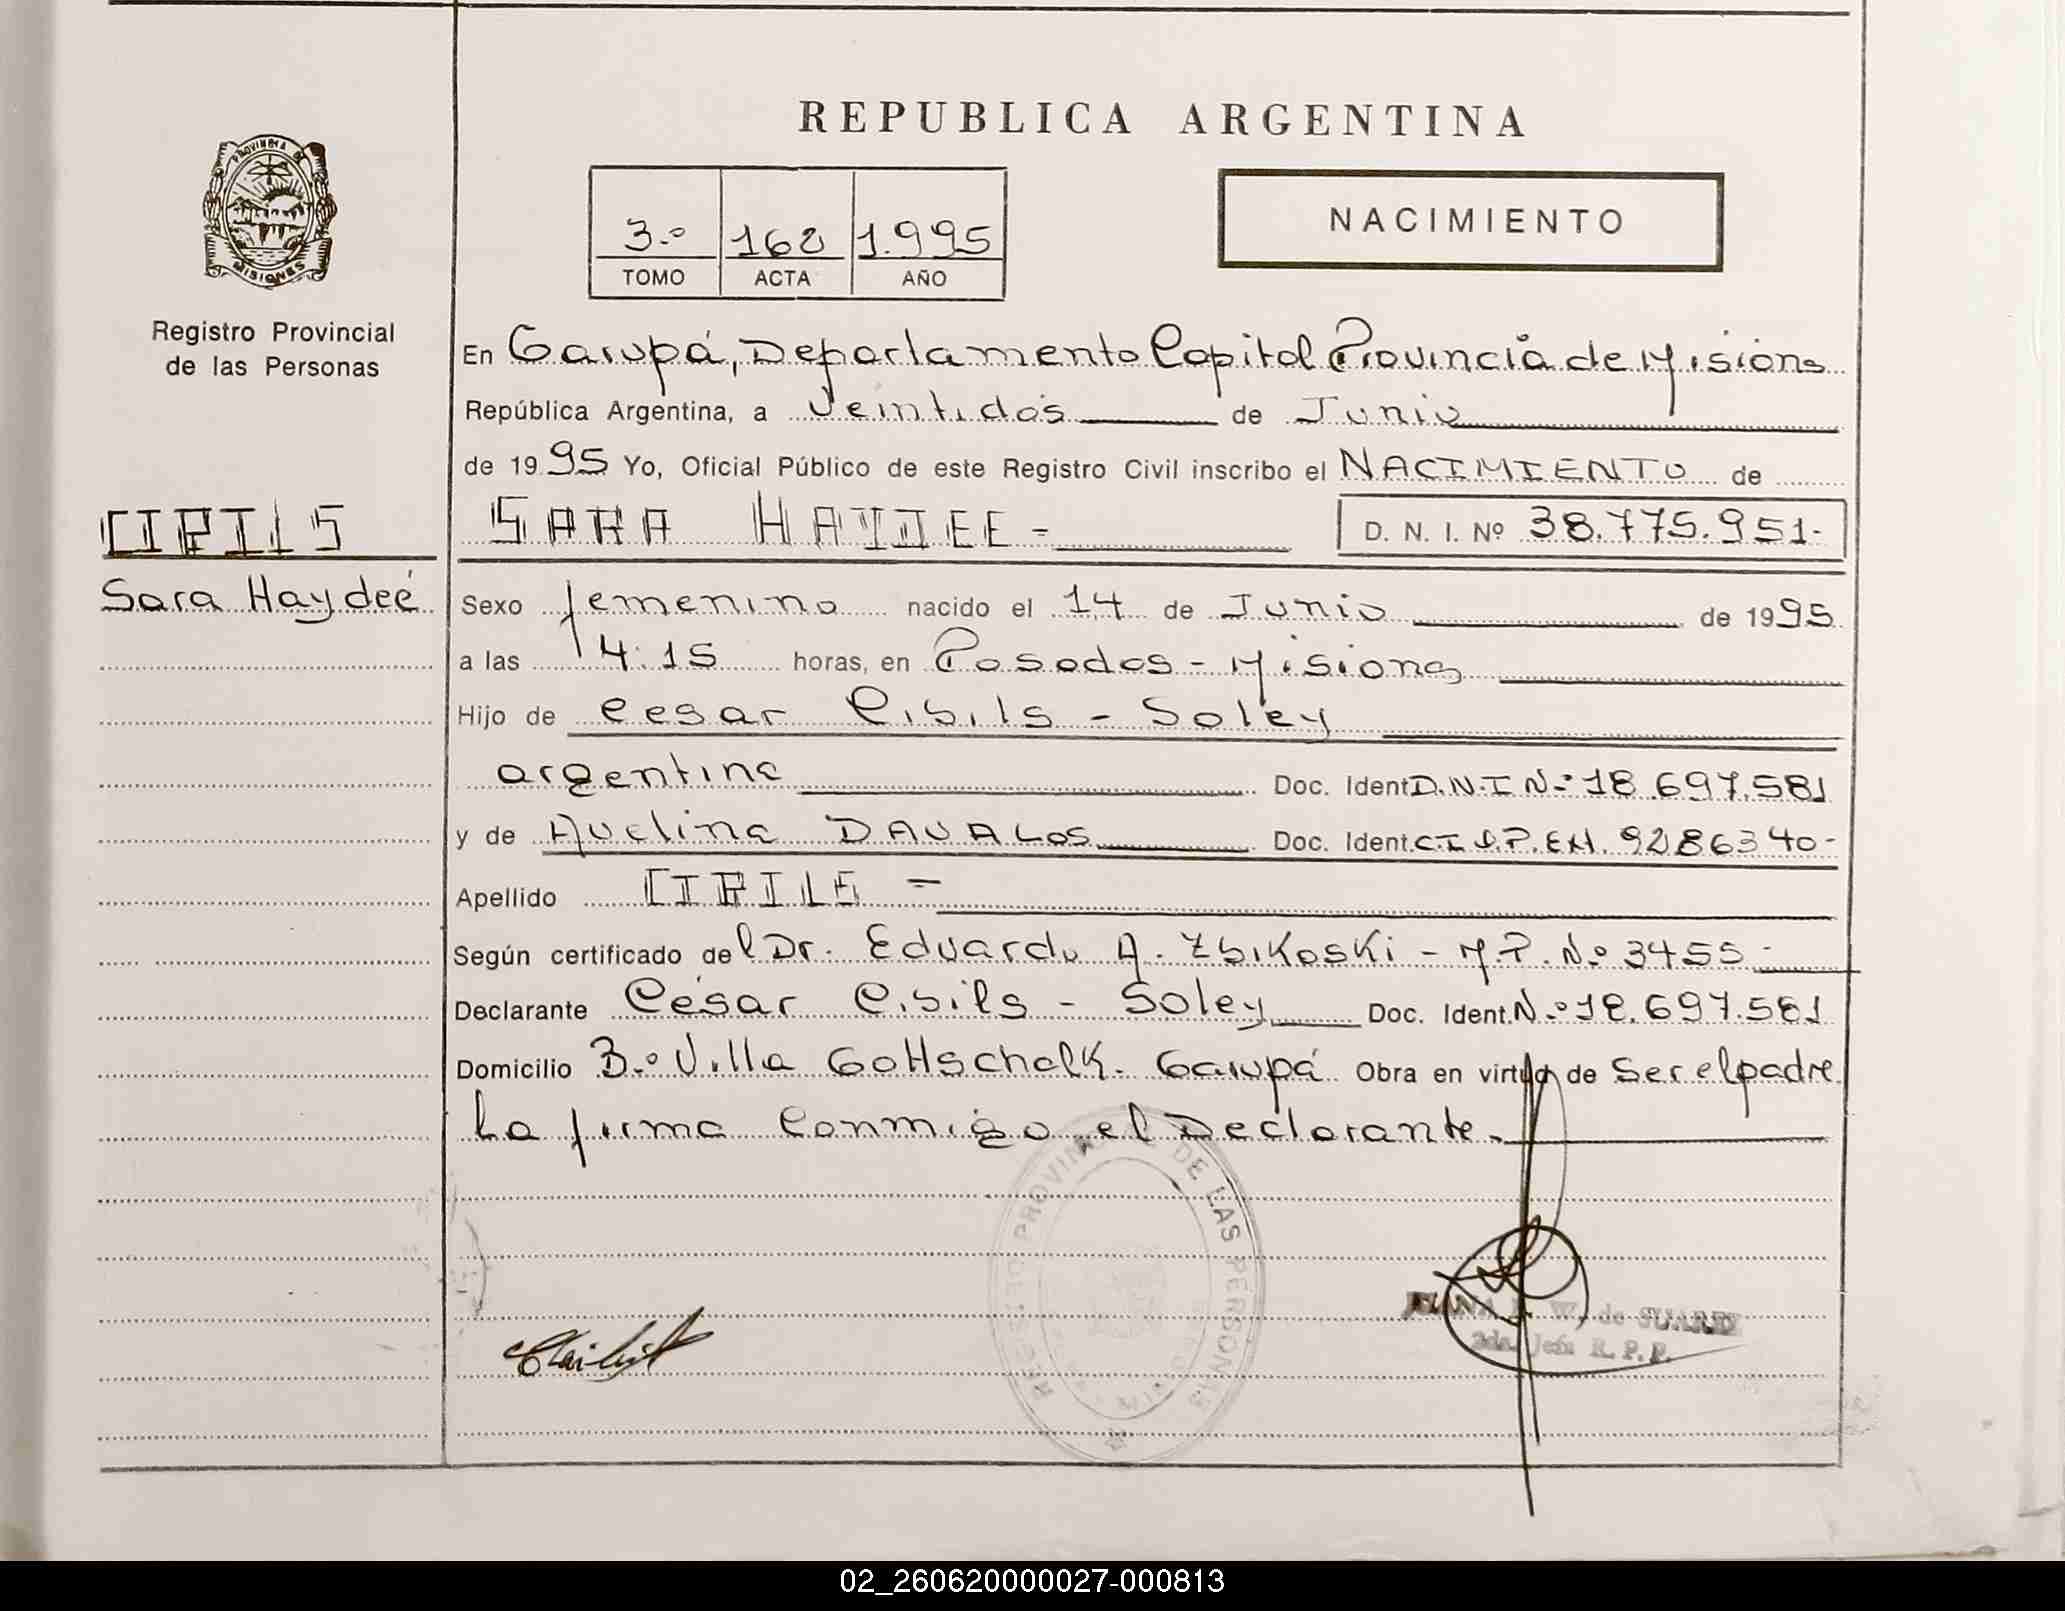 REPUBLICA ARGENTINA
PROVINCIA DE
MISIONES
Registro Provincial
de las Personas
3.º 162 1.995
TOMO ACTA AÑO
NACIMIENTO
En Garupá, Departamento Capital Provincia de Misions
República Argentina, a Veintidós de Junio
de 1995 Yo, Oficial Público de este Registro Civil inscribo el NACIMIENTO de
CIBILS
SARA HAYDEE - D. N. I. Nº 38.775.951-
Sara Haydeé
Sexo femenino nacido el 14 de Junio de 1995
a las 14:15 horas, en Posadas - Misions
Hijo de Cesar Cibils - Soley
argentina Doc. Ident D.N.I N.º 18.697.581
y de Avelina DAVALOS Doc. Ident. C.I. 9286340-
Apellido CIBILS -
Según certificado del Dr. Eduardo A. Zbikoski - M.P. N.º 3455 -
Declarante César Cibils - Soley Doc. Ident. N.º 18.697.581
Domicilio B.º Villa Gottschalk. Garupá Obra en virtud de Ser el padre
La firma Conmigo el Declarante.-
REGISTRO PROVINCIAL DE LAS PERSONAS
JUANA W. de SUAREZ
2da. Jefa R. P. P.
02_260620000027-000813